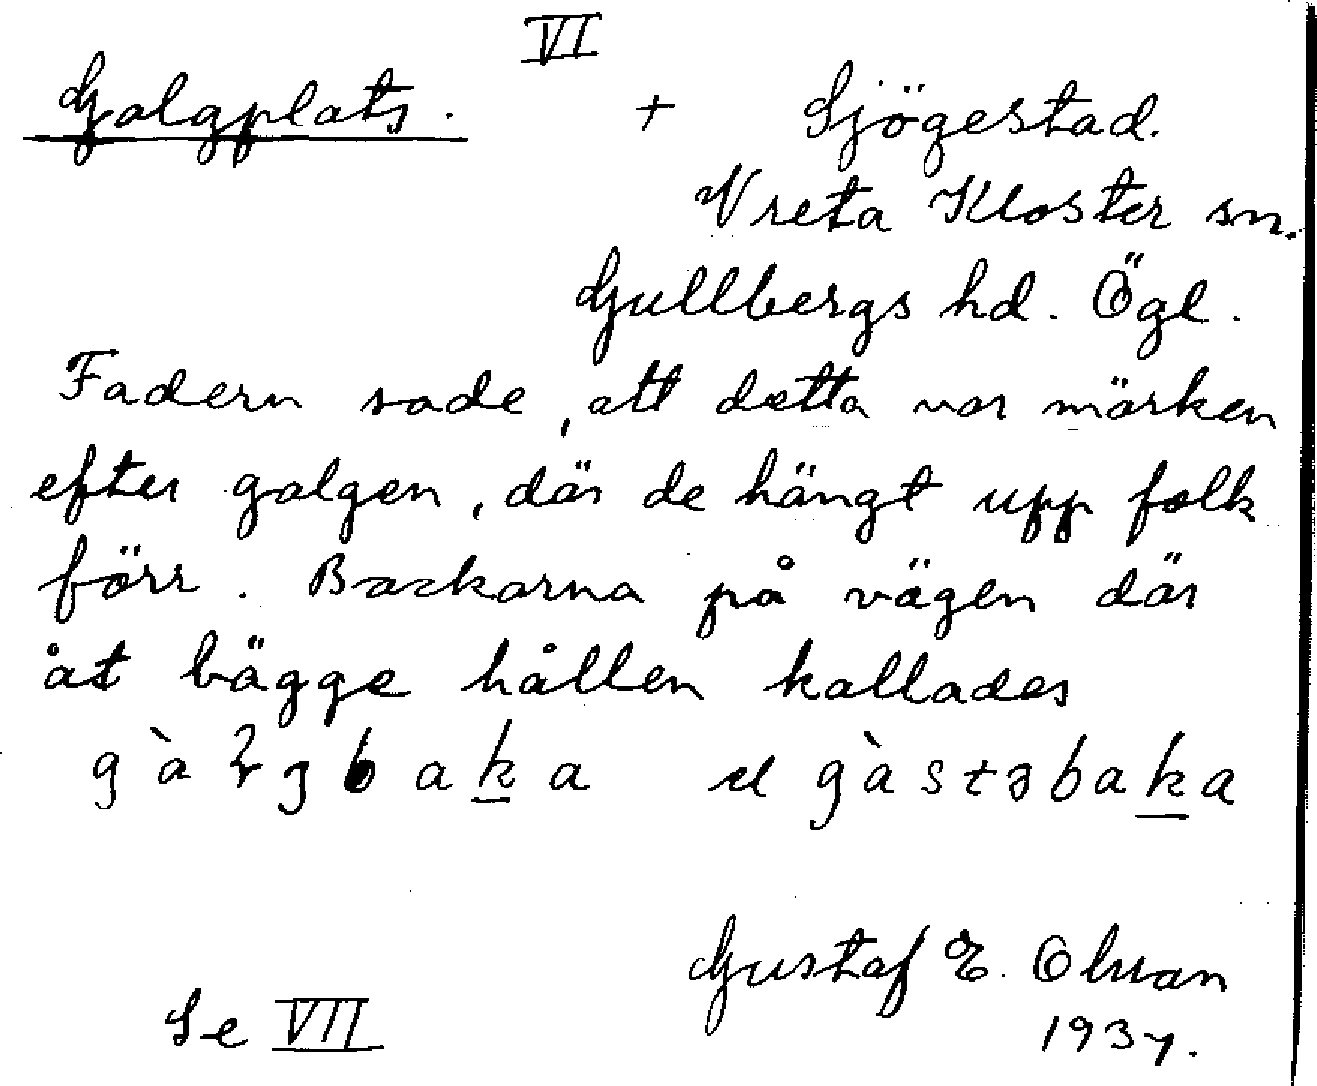 VI
Galgplats. + Sjögestad.
Vreta Kloster sn.
Gullbergs hd. Ögl.
Fadern sade, att detta var märken
efter galgen, där de hängt upp folk
förr. Backarna på vägen där
åt bägge hållen kallades
gàstəbaka
Gustaf E.
Se VII 1937.